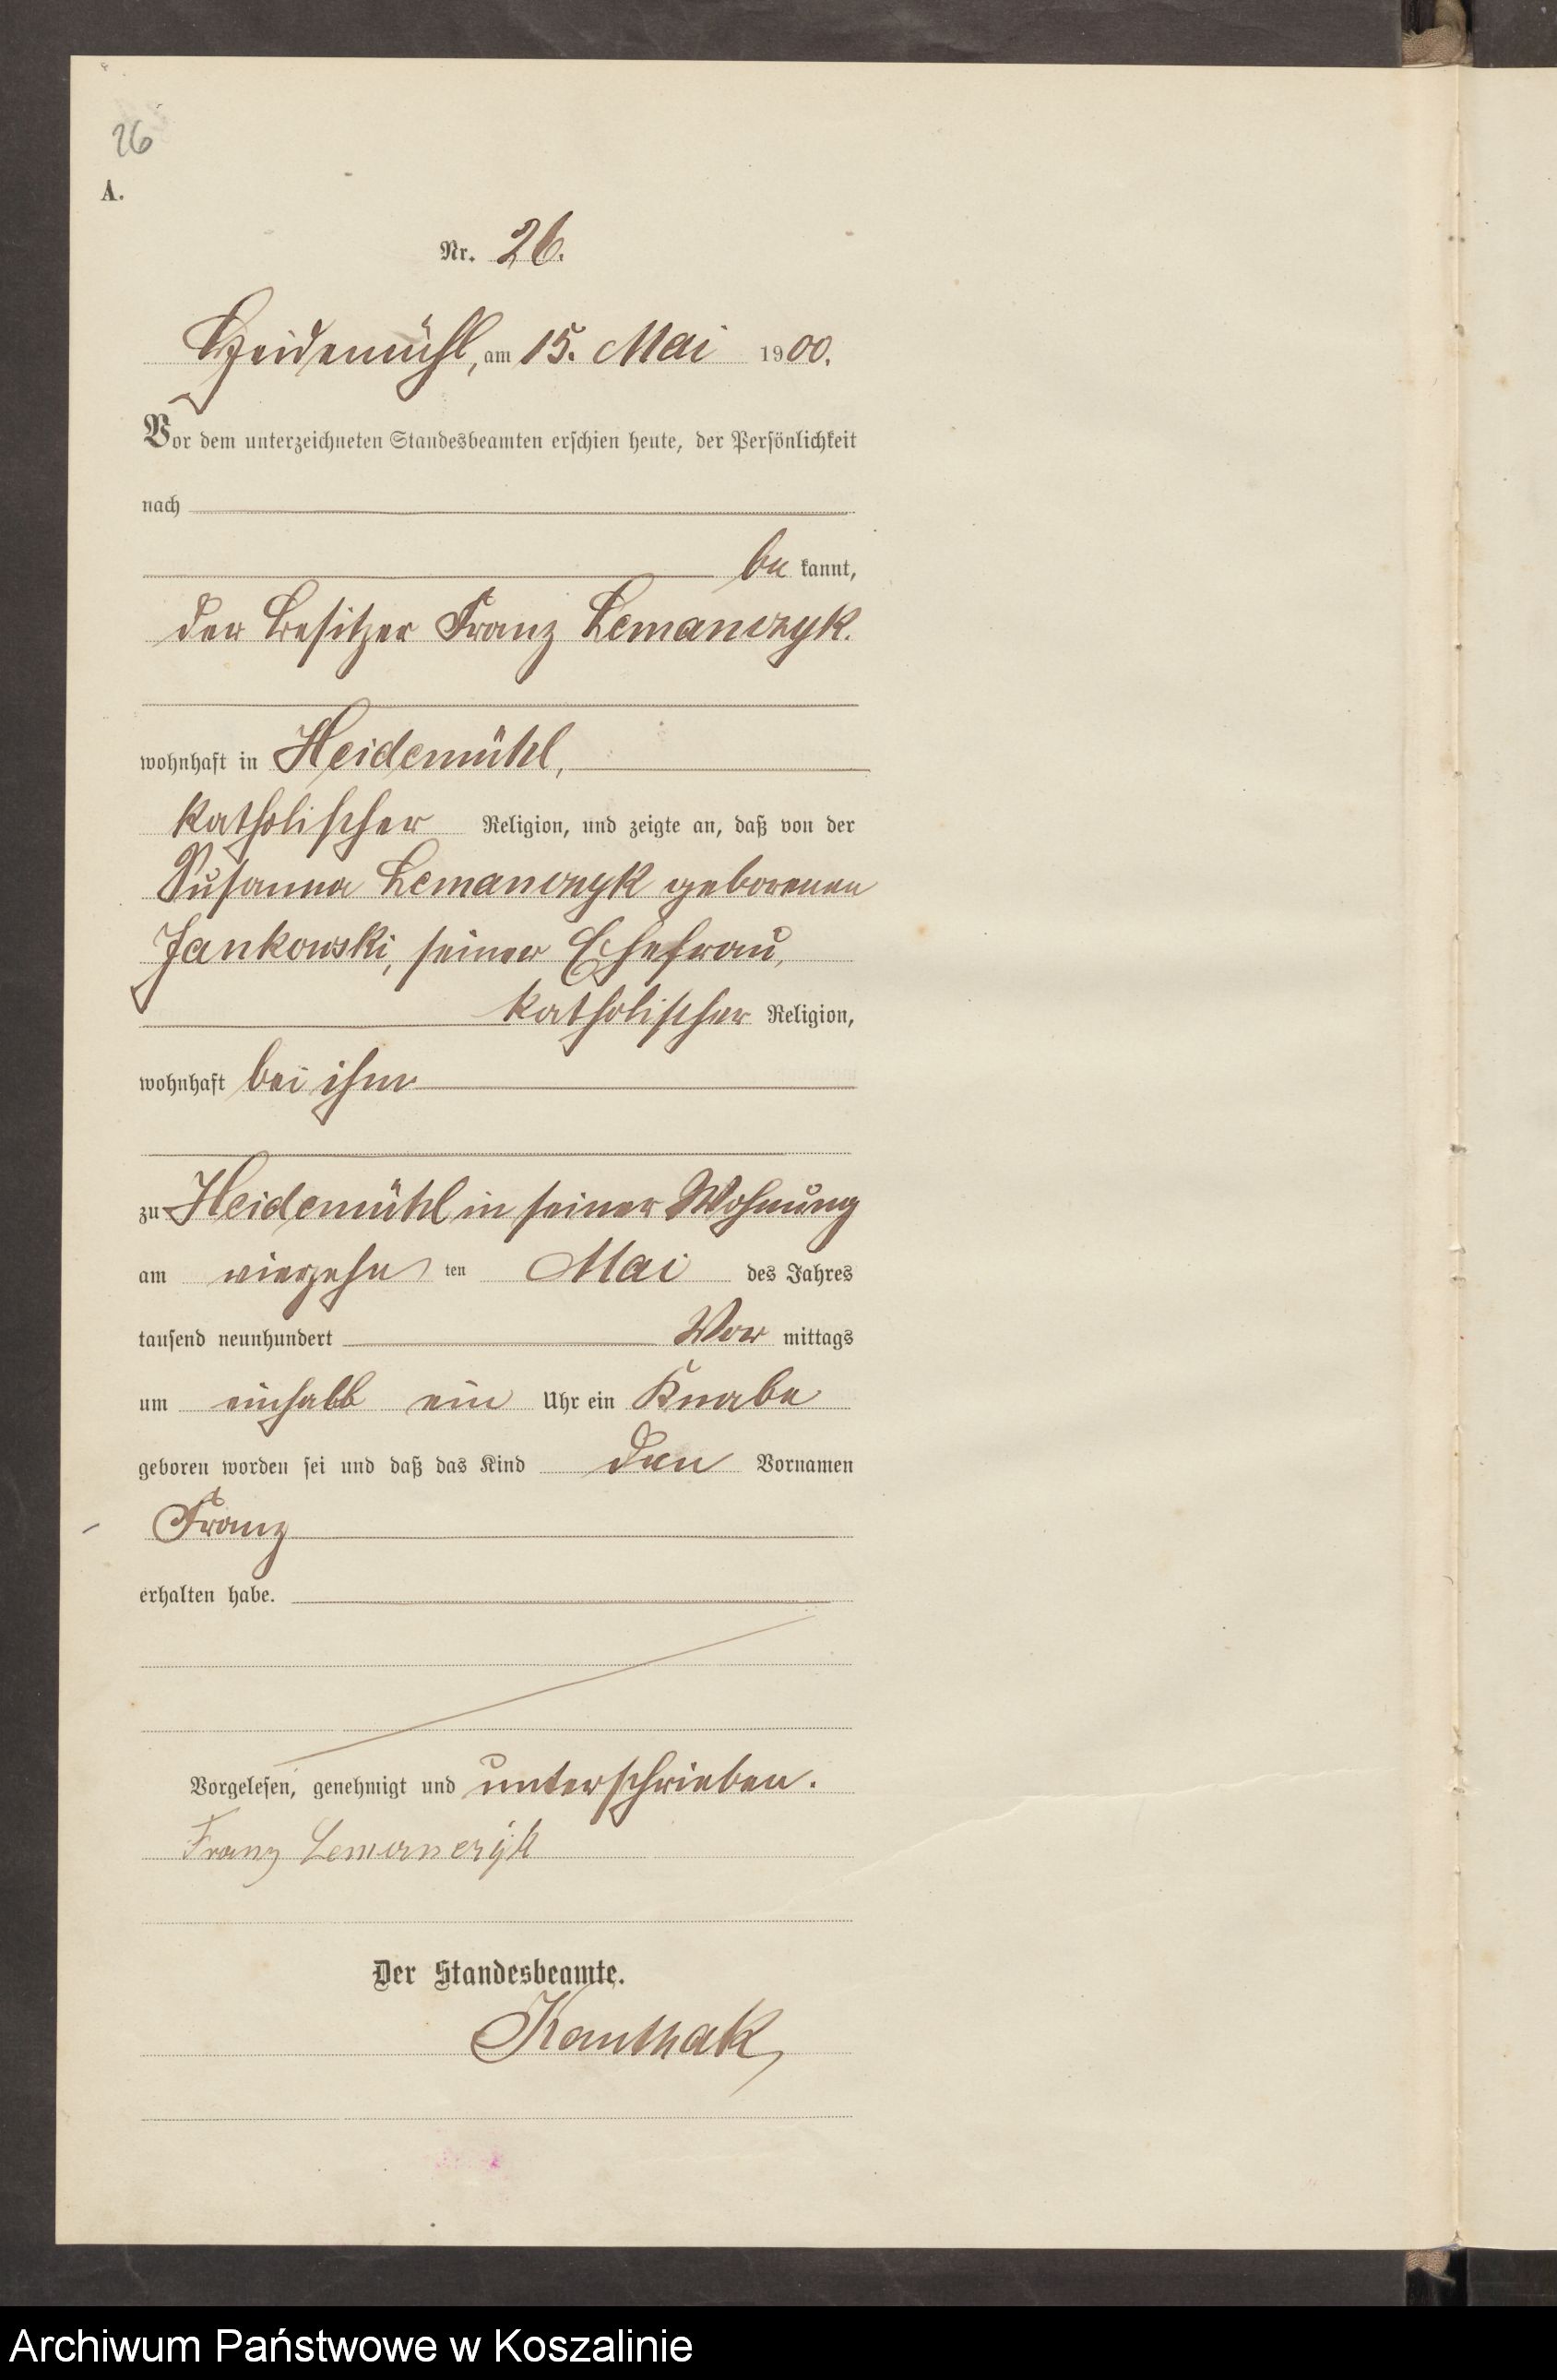 26
A.
Nr. 26.
Heidemühl, am 15. Mai 1900.
Vor dem unterzeichneten Standesbeamten erschien heute, der Persönlichkeit
nach
be kannt,
der Besitzer Franz Lemanczyk.
wohnhaft in Heidemühl,
katholischer Religion, und zeigte an, daß von der
Susanna Lemanczyk geborenen
Jankowski, seiner Ehefrau,
katholischer Religion,
wohnhaft bei ihm
zu Heidemühl in seiner Wohnung
am vierzehn ten Mai des Jahres
tausend neunhundert Vor mittags
um einhalb ein Uhr ein Knabe
geboren worden sei und daß das Kind den Vornamen
Franz
erhalten habe.
Vorgelesen, genehmigt und unterschrieben.
Franz Lemanczyk
Der Standesbeamte.
Kanthak
Archiwum Państwowe w Koszalinie